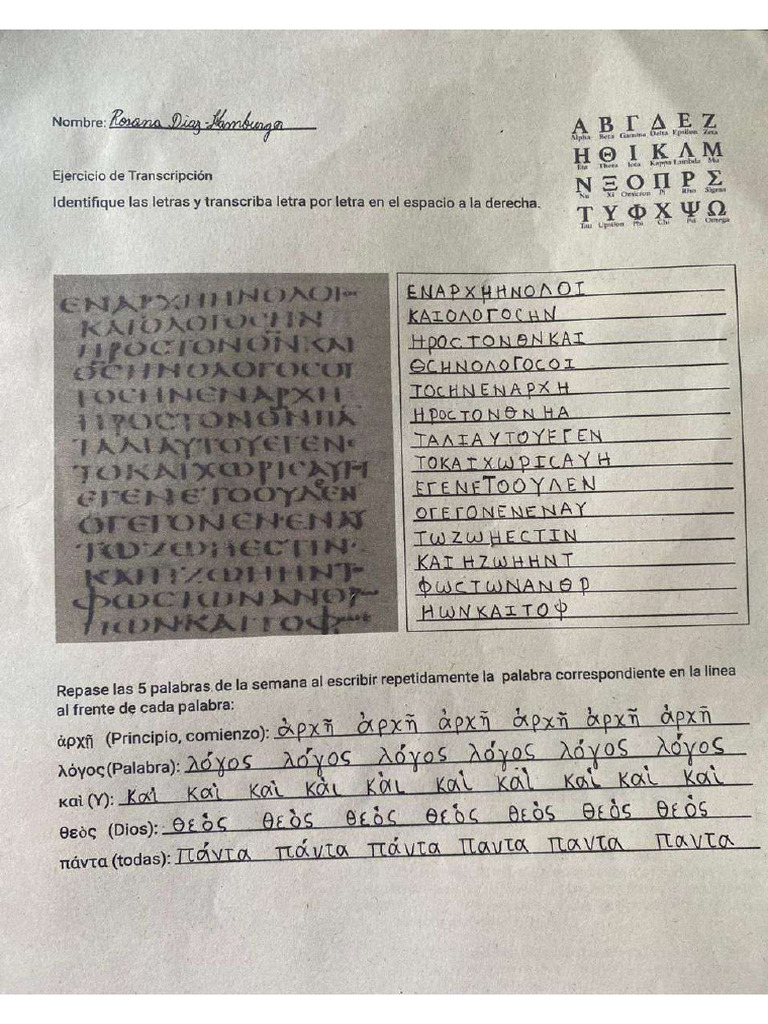 Nombre: Rosana Diaz-Hamburger
Α Β Γ Δ Ε Ζ
Alpha Beta Gamma Delta Epsilon Zeta
Η Θ Ι Κ Λ Μ
Eta Theta Iota Kappa Lambda Mu
Ν Ξ Ο Π Ρ Σ
Nu Xi Omicron Pi Rho Sigma
Τ Υ Φ Χ Ψ Ω
Tau Upsilon Phi Chi Psi Omega
Ejercicio de Transcripción
Identifique las letras y transcriba letra por letra en el espacio a la derecha.
ΕΝΑΡΧΗΗΝΟΛΟΙ
ΚΑΙΟΛΟΓΟϹΗΝ
ΠΡΟϹΤΟΝΘΝΚΑΙ
ΘϹΗΝΟΛΟΓΟϹΟΥ
ΤΟϹΗΝΕΝΑΡΧΗ
ΠΡΟϹΤΟΝΘΝΠΑ
ΤΑΔΙΑΥΤΟΥΕΓΕΝ
ΤΟΚΑΙΧΩΡΙϹΑΥΤΟΥ
ΕΓΕΝΕΤΟΟΥΔΕΝ
ΟΓΕΓΟΝΕΝΕΝΑΥ
ΤΩΖΩΗΕϹΤΙΝ
ΚΑΙΗΖΩΗΗΝΤ
ΦΩϹΤΩΝΑΝΘΡ
ΠΩΝΚΑΙΤΟΦ
ΕΝΑΡΧΗΗΝΟΛΟΙ
ΚΑΙΟΛΟΓΟϹΗΝ
ΗΡΟϹΤΟΝΘΝΚΑΙ
ΘϹΗΝΟΛΟΓΟϹΟΙ
ΤΟϹΗΝΕΝΑΡΧΗ
ΗΡΟϹΤΟΝΘΝΗΑ
ΤΑΛΙΑΥΤΟΥΕΓΕΝ
ΤΟΚΑΙΧΩΡΙϹΑΥΗ
ΕΓΕΝΕΤΟΟΥΛΕΝ
ΟΓΕΓΟΝΕΝΕΝΑΥ
ΤΩΖΩΗΕϹΤΙΝ
ΚΑΙΗΖΩΗΗΝΤ
ΦΩϹΤΩΝΑΝΘΡ
ΗΩΝΚΑΙΤΟΦ
Repase las 5 palabras de la semana al escribir repetidamente la palabra correspondiente en la linea
al frente de cada palabra:
ἀρχῆ (Principio, comienzo): ἀρχῆ ἀρχῆ ἀρχῆ ἀρχῆ ἀρχῆ ἀρχῆ
λόγος (Palabra): λόγος λόγος λόγος λόγος λόγος λόγος
καὶ (Y): καὶ καὶ καὶ καὶ καὶ καὶ καὶ καὶ καὶ
θεὸς (Dios): θεὸς θεὸς θεὸς θεὸς θεὸς θεὸς θεὸς
πάντα (todas): πάντα πάντα πάντα παντα παντα παντα